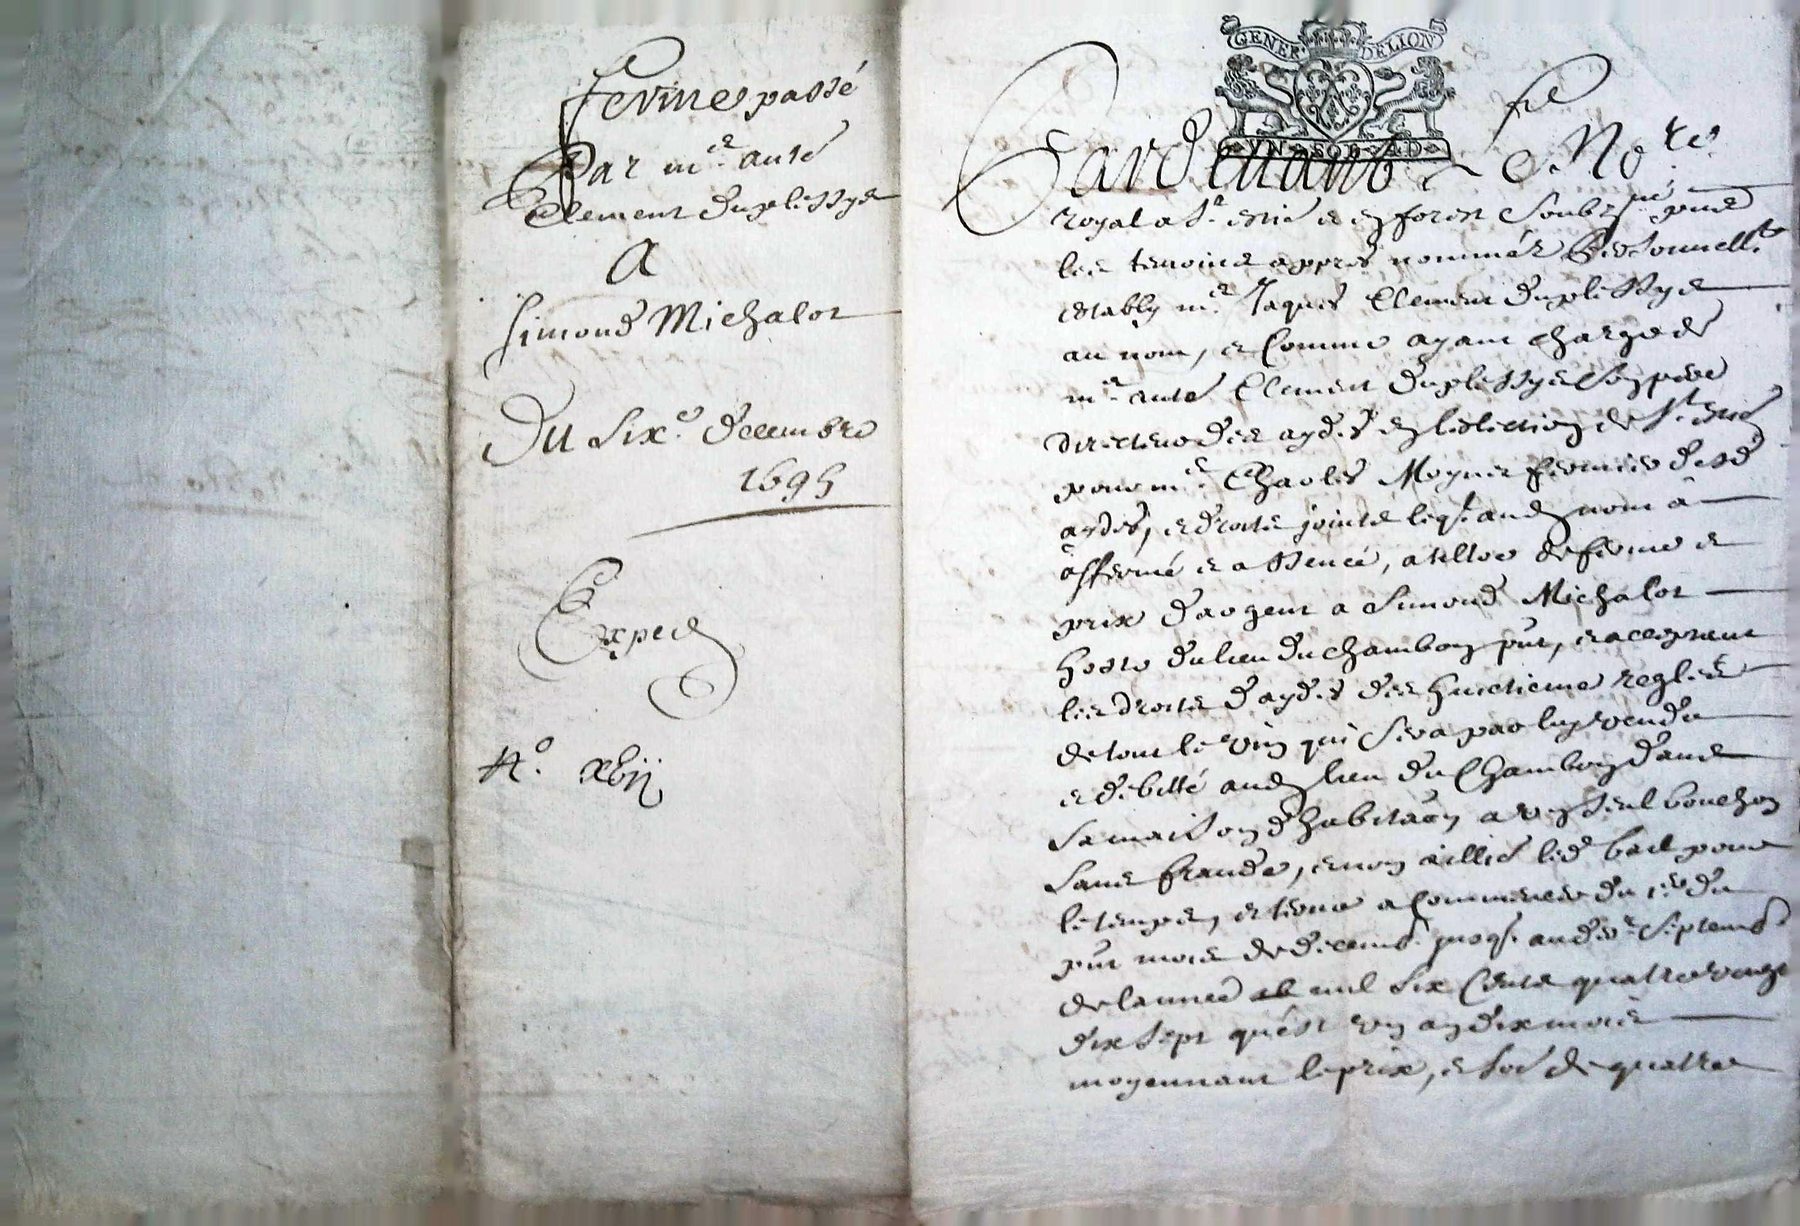 Ferme passé
Par me anté
Clement Duplessys
A
Simond Michalot
Du Sixe decembre
1695
Exped
No. xbij
GENER. DELION
VN SOL AD
Pardevant le Nore
royal a St estie et en forest soubzné put
les temoins appres nommés Personnellt
estably me Jaques Clement Duplessys
au nom, et comme ayant charge de
me anté Clement Duplessys son pere
directeur des aydes en leslection de St estie
pour me Charles Moynet fermier desd
aydes, et droits joints leql aud nom à
affermé et assencé, a tiltre de ferme et
prix d'argent a Simond Michalot
hoste du lieu du chambon put, et acceptant
les droits d'aydes des huictieme reglés
de tout le vin qui sera par luy vendu
et debitté aud lieu du Chambon dans
sa maison d'habitaon a un seul bouchon
sans fraude, et non aillieurs led bail pour
le temps, et terme a commencer du 1er du
put mois de decemb. jusql au der Septemb
de lannée mil six cents quattre vingt
dix sept qu'est un an dix mois
moyennant le prix, et so de quattre